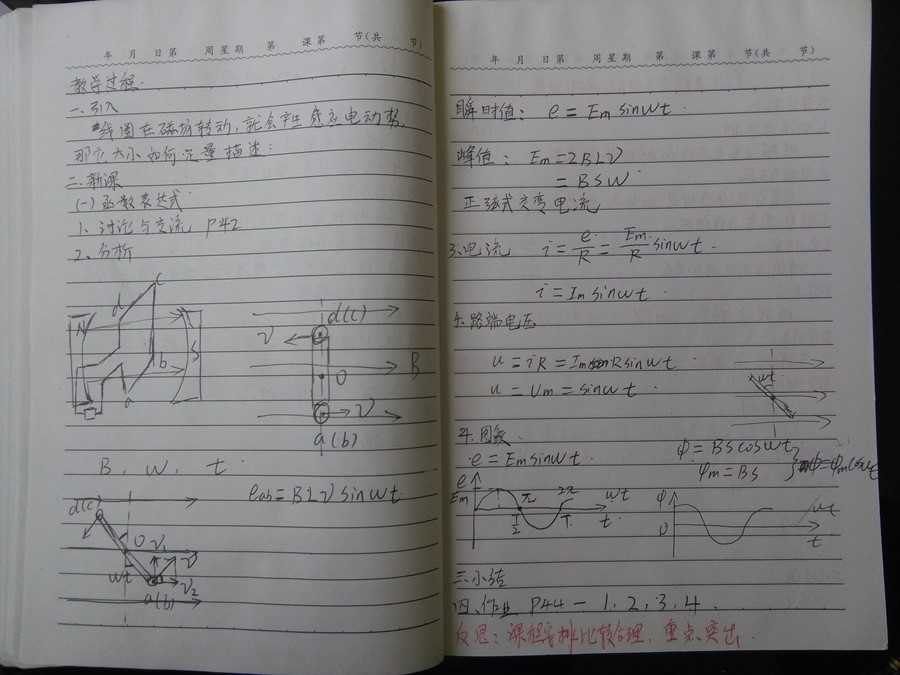 年 月 日第 周星期 第 课第 节(共 节)
教学过程
一.引入
线圈在磁场转动,就会产生感应电动势
那它大小如何定量描述:
二.新课
(一)函数表达式
1、讨论与交流 P42
2、分析
N
d
c
S
b
a
d(c)
v
B
O
v
a(b)
B, w, t
e ab = BLv sinwt
d(c)
O
v₁
v
wt
v₂
a(b)
年 月 日第 周星期 第 课第 节(共 节)
瞬时值: e = Em sinwt.
峰值: Em = 2BLv
= BSW
正弦式交变电流
3.电流 i = e/R = Em/R sinwt.
i = Im sinwt.
路端电压
u = iR = Im R sinwt
u = Um = sinwt.
wt
4.图象
e = Em sinwt.
φ = BScoswt
φm = BS
φ = φm coswt
e
Em
π
2π
wt
T/2
T
t
φ
0
wt
t
三.小结
四.作业 P44 — 1, 2, 3, 4.
反思:课程安排比较合理,重点突出.